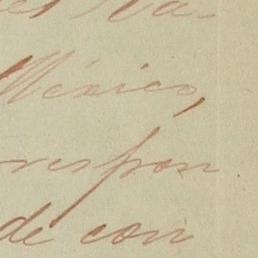 México,
respon
de con